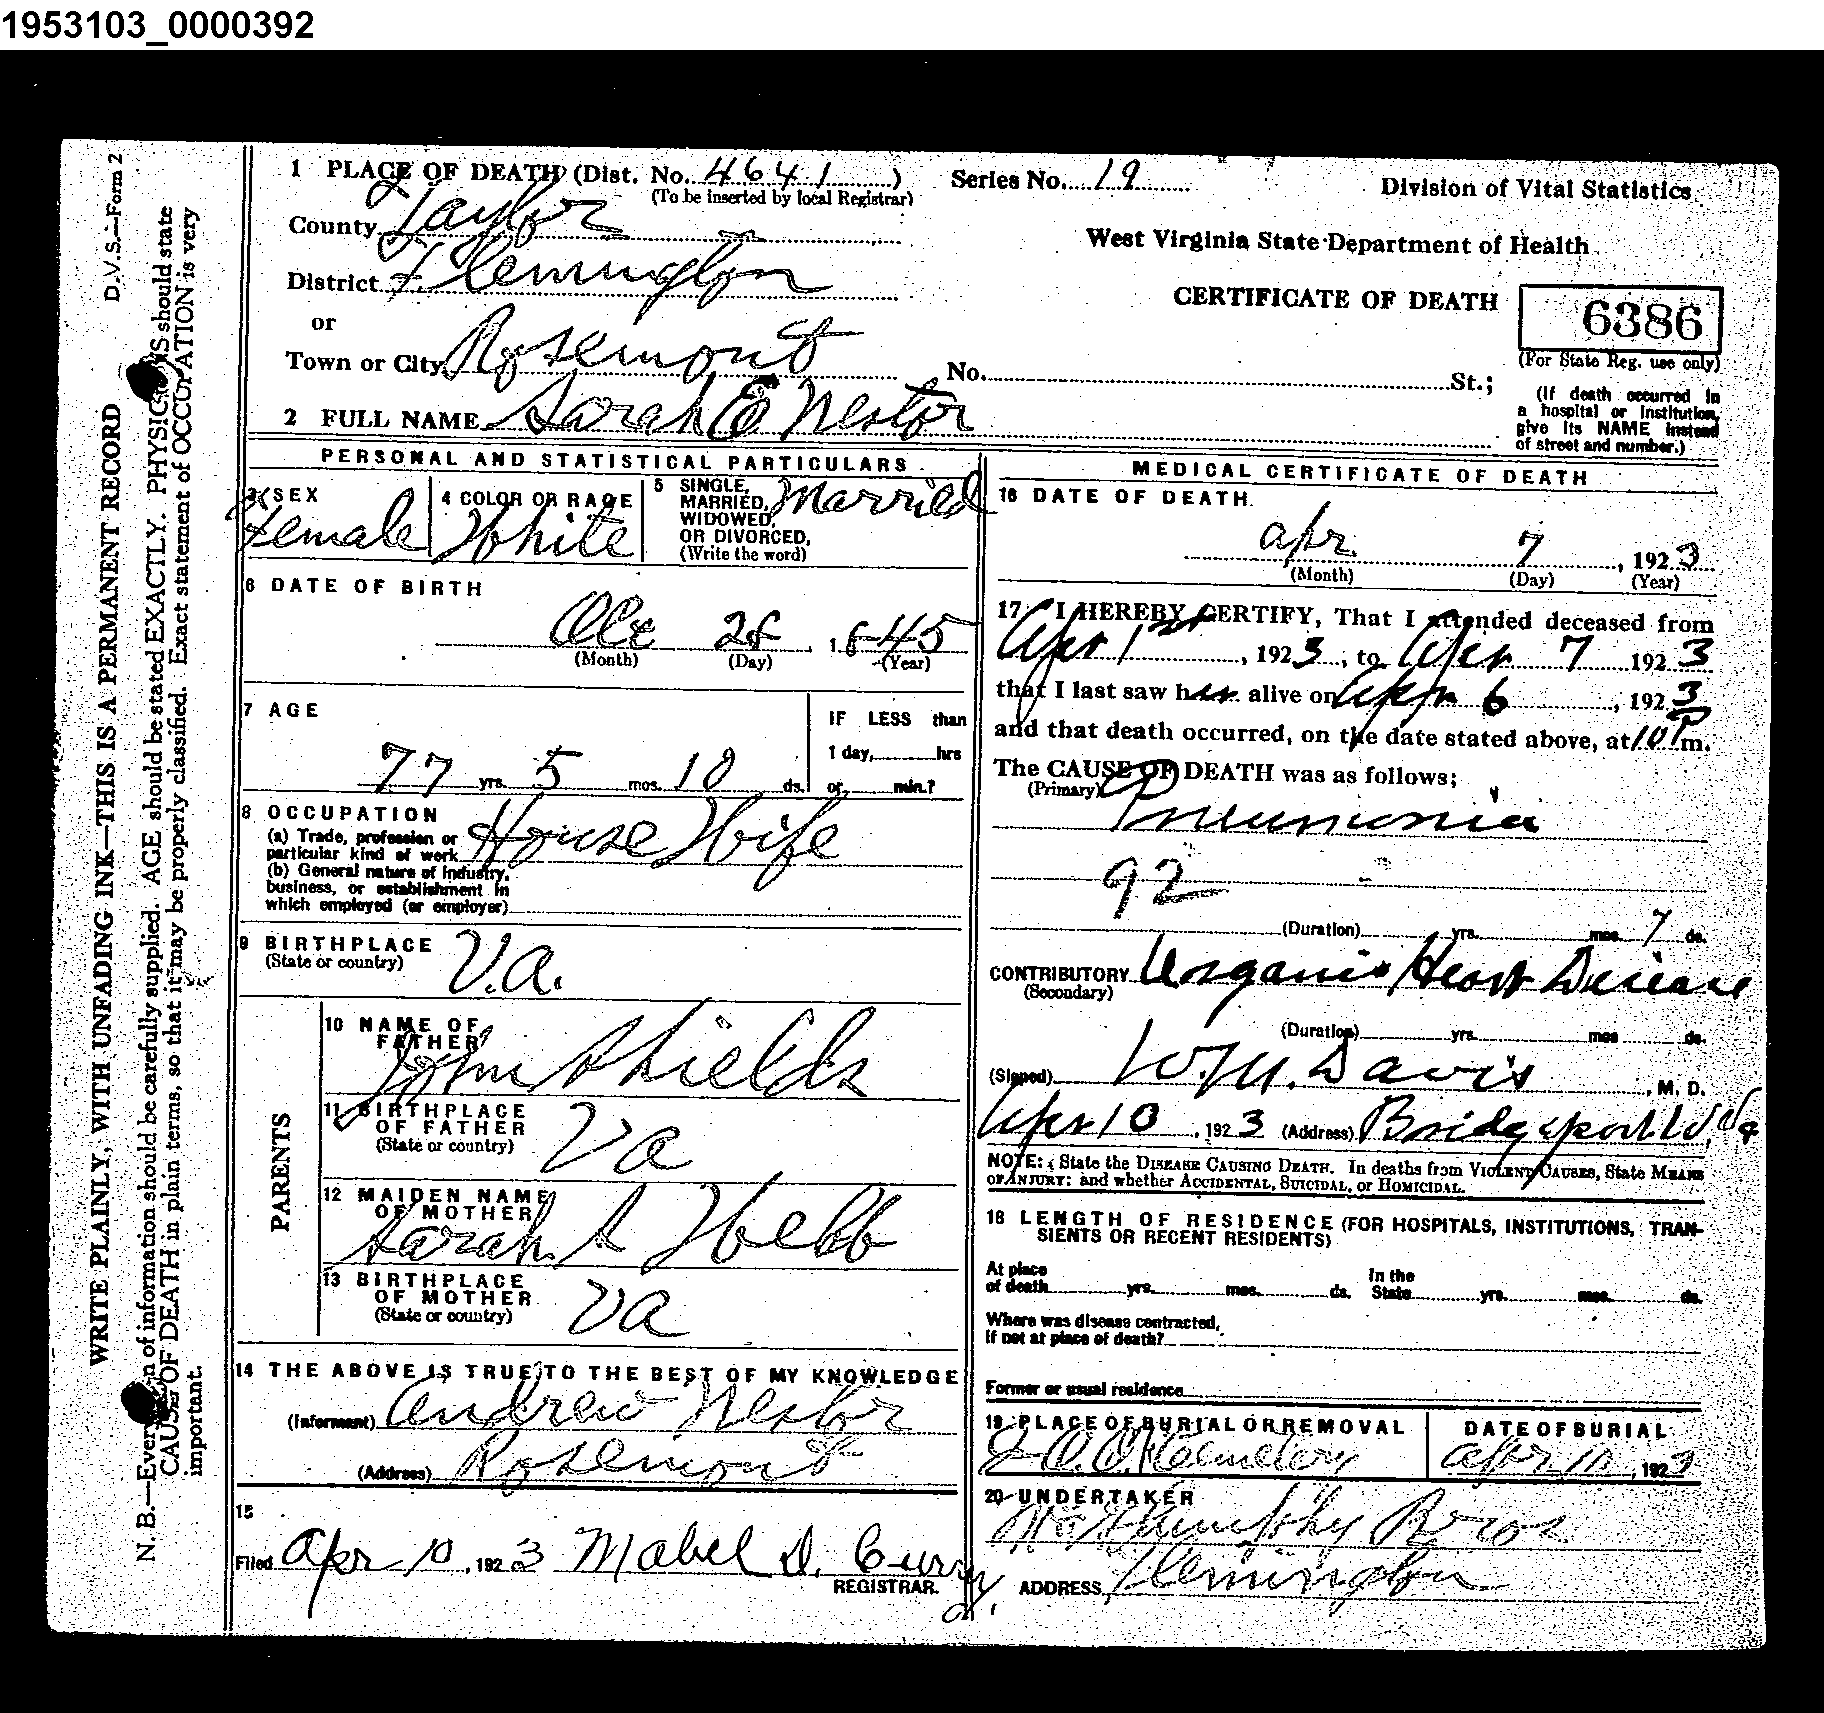 1953103_0000392
D.V.S.—Form 2
WRITE PLAINLY, WITH UNFADING INK—THIS IS A PERMANENT RECORD
N. B.—Every of information should be carefully supplied. AGE should be stated EXACTLY. PHYSIC S should state
CAUSE OF DEATH in plain terms, so that it may be properly classified. Exact statement of OCCUPATION is very
important.
1 PLACE OF DEATH (Dist. No. 4641 )
(To be inserted by local Registrar)
Series No. 19
Division of Vital Statistics
County Taylor
West Virginia State Department of Health
District Flemington
CERTIFICATE OF DEATH
6386
(For State Reg. use only)
or
Town or City Rosemont
No. St.;
(If death occurred in
a hospital or institution,
give its NAME instead
of street and number.)
2 FULL NAME Sarah E Nestor
PERSONAL AND STATISTICAL PARTICULARS
3 SEX
Female
4 COLOR OR RACE
White
5 SINGLE,
MARRIED,
WIDOWED,
OR DIVORCED,
(Write the word)
Married
6 DATE OF BIRTH
Oct 28, 1845
(Month) (Day) (Year)
7 AGE
77 yrs. 5 mos. 10 ds.
IF LESS than
1 day, hrs
or min.?
8 OCCUPATION
(a) Trade, profession or
particular kind of work
House Wife
(b) General nature of industry,
business, or establishment in
which employed (or employer)
9 BIRTHPLACE
(State or country)
V.a.
PARENTS
10 NAME OF
FATHER
John Shields
11 BIRTHPLACE
OF FATHER
(State or country)
Va
12 MAIDEN NAME
OF MOTHER
Sarah S Webb
13 BIRTHPLACE
OF MOTHER
(State or country)
Va
14 THE ABOVE IS TRUE TO THE BEST OF MY KNOWLEDGE
(Informant) Andrew Nestor
(Address) Rosemont
15
Filed Apr 10, 1923 Mabel D. Curry
REGISTRAR.
MEDICAL CERTIFICATE OF DEATH
16 DATE OF DEATH
Apr 7, 1923
(Month) (Day) (Year)
17 I HEREBY CERTIFY, That I attended deceased from
Apr 1st, 1923, to Apr 7 1923
that I last saw her alive on Apr 6, 1923
and that death occurred, on the date stated above, at 10 P m.
The CAUSE OF DEATH was as follows;
(Primary)
Pneumonia
92
(Duration) yrs. mos. 7 ds.
CONTRIBUTORY Organic Heart Disease
(Secondary)
(Duration) yrs. mos ds.
(Signed) W.M. Davis, M. D.
Apr 10, 1923 (Address) Bridgeport W.Va
NOTE: State the DISEASE CAUSING DEATH. In deaths from VIOLENT CAUSES, State MEANS
OF INJURY: and whether ACCIDENTAL, SUICIDAL, or HOMICIDAL.
18 LENGTH OF RESIDENCE (FOR HOSPITALS, INSTITUTIONS, TRAN-
SIENTS OR RECENT RESIDENTS)
At place
of death yrs. mos. ds.
In the
State yrs. mos. ds.
Where was disease contracted,
if not at place of death?
Former or usual residence
19 PLACE OF BURIAL OR REMOVAL
Cemetery
DATE OF BURIAL
Apr 10, 1923
20 UNDERTAKER
Bros
ADDRESS, Flemington